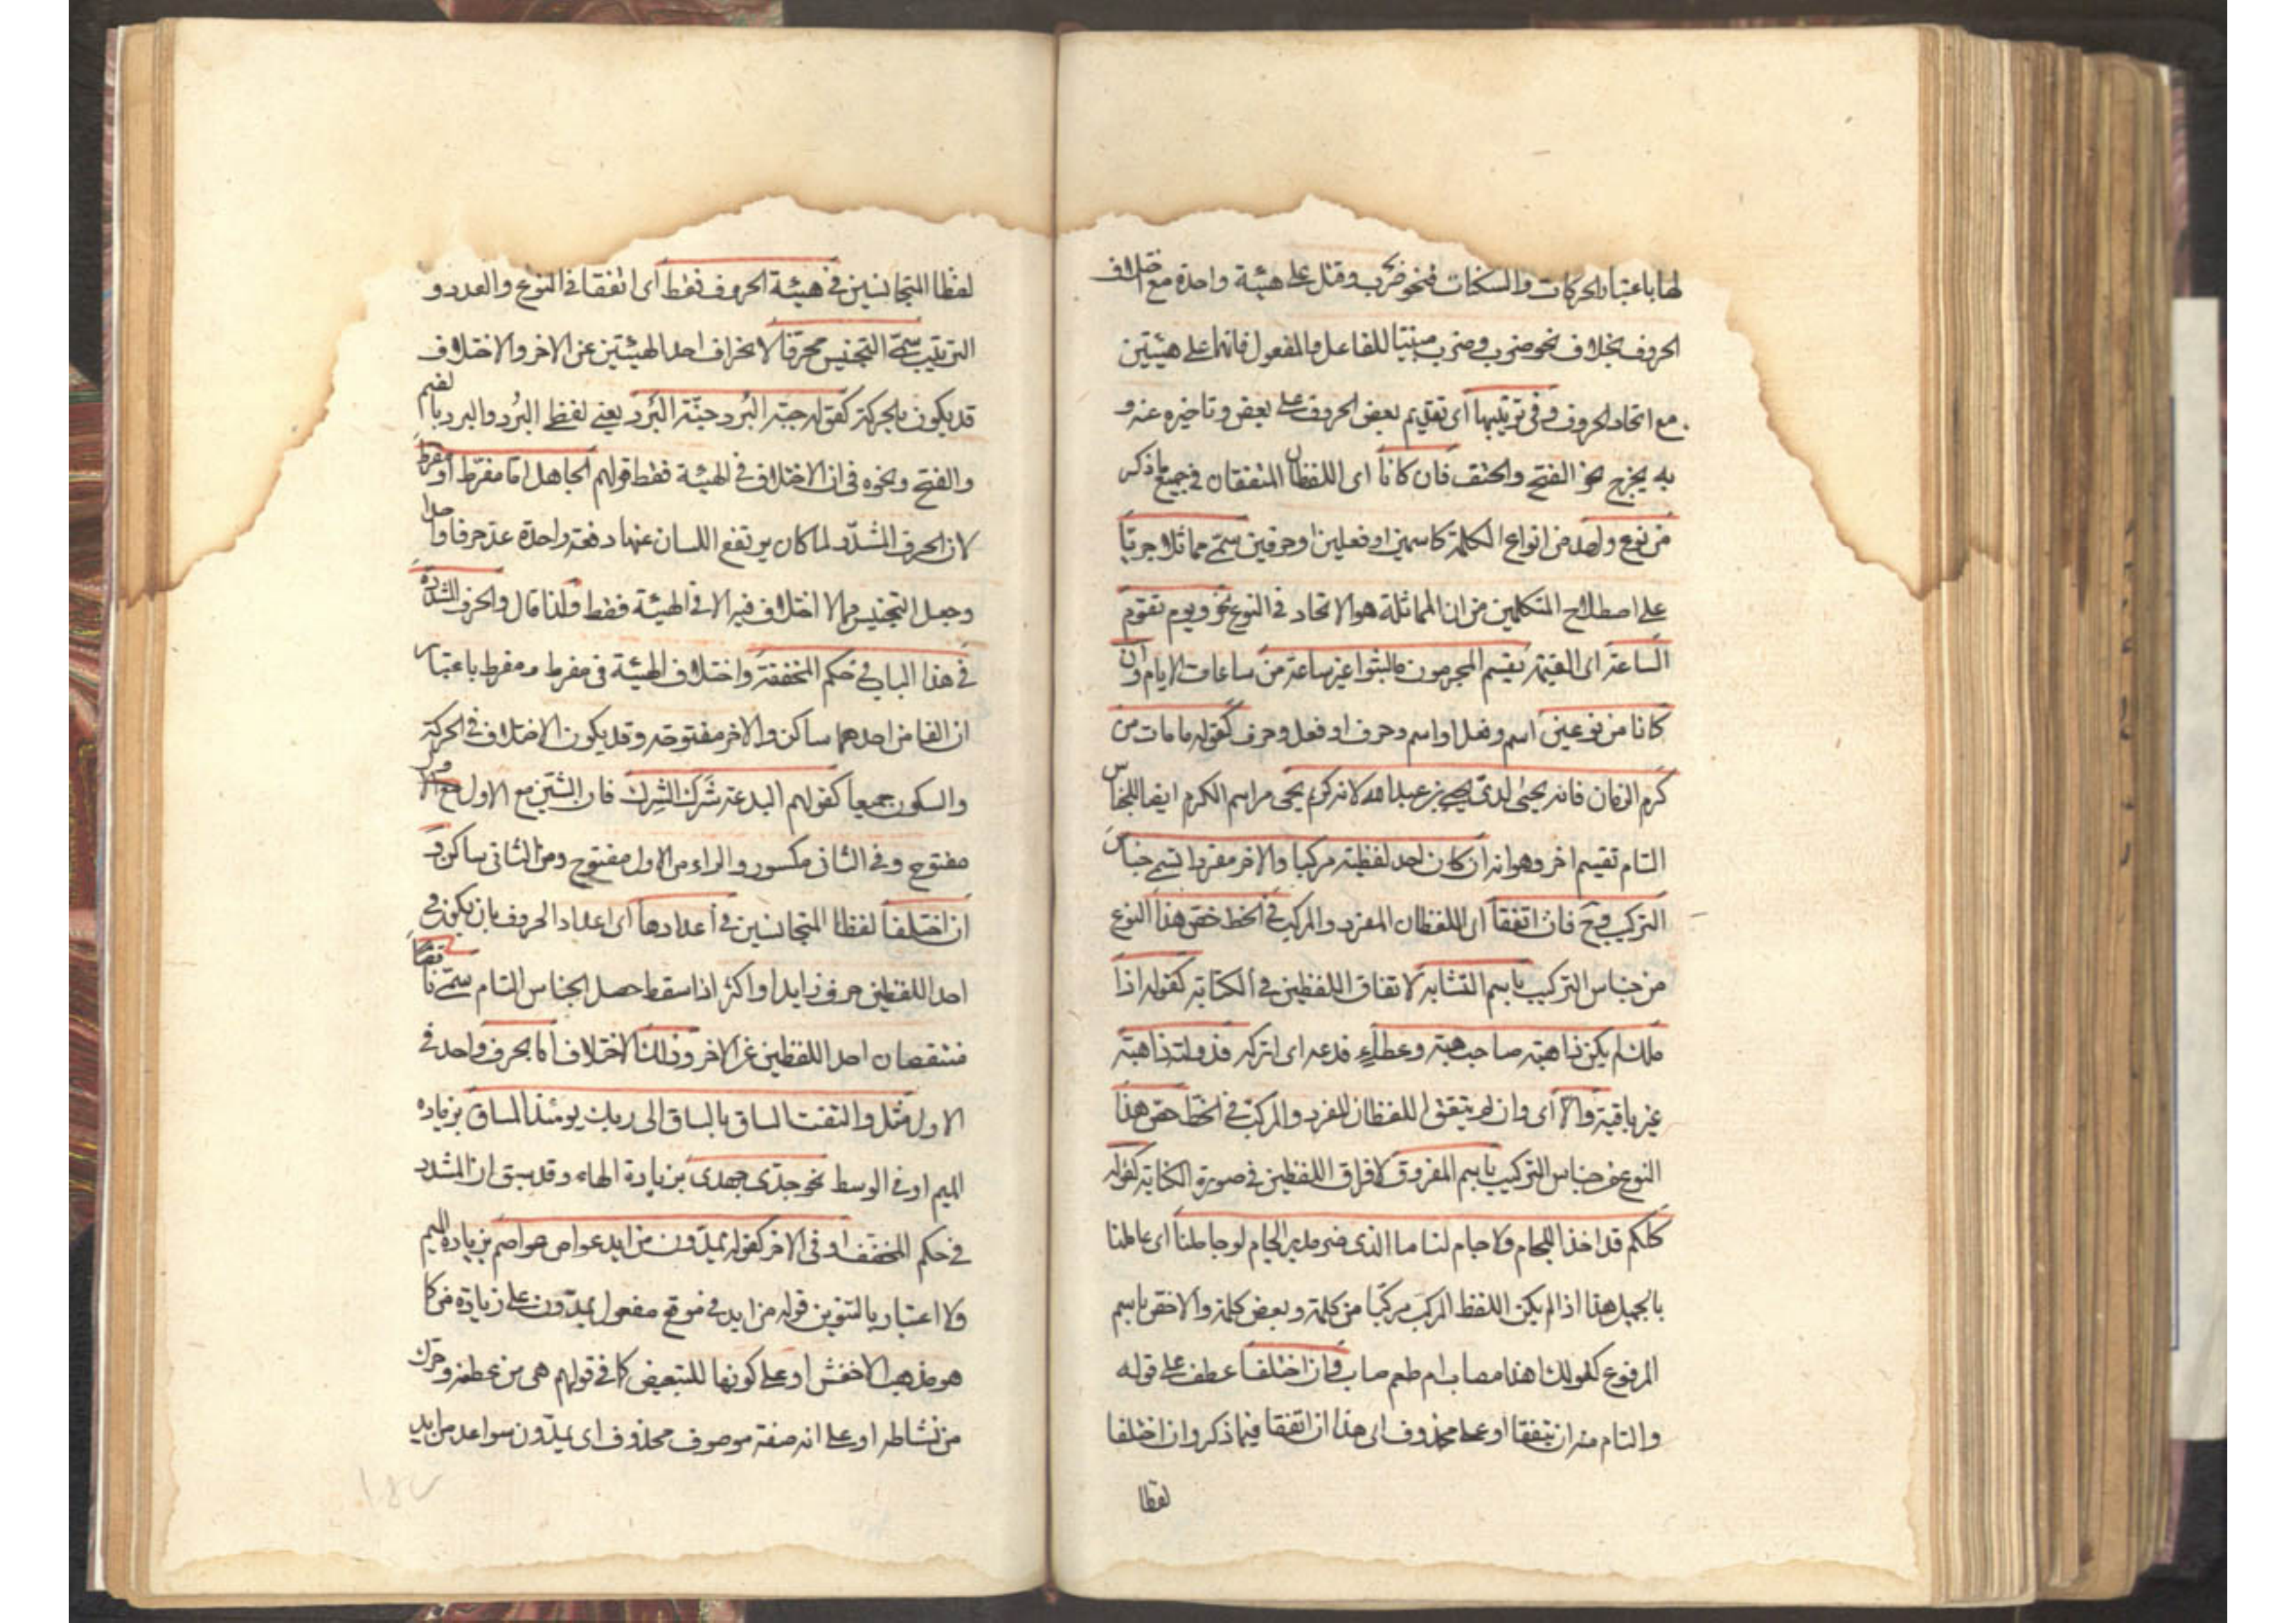 لها باعتبار الحركات والسكنات فنحو ضرب وقتل على هيئة واحدة مع اختلاف
الحروف بخلاف نحو ضرب وضرب مبنيا للفاعل والمفعول فانهما على هيئتين
مع اتحاد الحروف وفي ترتيبها اى تقديم بعض الحروف على بعض وتاخيره عنه و
به يخرج نحو الفتح والحتف فان كانا اى اللفظان المتفقان في جميع ما ذكر
من نوع واحد من انواع الكلمة كاسمين او فعلين او حرفين سمّى مماثلا جريّا
على اصطلاح المتكلمين من ان المماثلة هو الاتحاد في النوع نحو ويوم تقوم
الساعة اى القيمة يقسم المجرمون ما لبثوا غير ساعة من ساعات الايام وان
كانا من نوعين اسم وفعل او اسم وحرف او فعل وحرف كقوله ما مات من
كرم الزمان فانه يحيى لدى يحيى بن عبد الله لانه كريم يحيى مراسم الكرم ايضا للجناس
التام تقسيم اخر وهو انه ان كان احد لفظيه مركبا والاخر مفردا تسمى جناس
التركيب وح فان اتفقا اى اللفظان المفرد والمركب في الخط خص هذا النوع
من جناس التركيب باسم المتشابه لاتفاق اللفظين في الكتابة كقوله اذا
ملك لم يكن ذا هبة صاحب هبة وعطاء فدعه اى اتركه فدولته ذاهبة
غير باقية والا اى وان لم يتفق اللفظان المفرد والمركب في الخط خص هذا
النوع من جناس التركيب باسم المفروق لافتراق اللفظين في صورة الكتابة كقوله
كلكم قد اخذ الجام ولا جام لنا ما الذى ضر مدير الجام لو جاملنا اى عاملنا
بالجميل هذا اذا لم يكن اللفظ المركب مركبا من كلمة وبعض كلمة والا خص باسم
المرفوع كقولك اهذا مصاب ام طعم صاب وان اختلفا عطف على قوله
والتام منه ان يتفقا او على محذوف اى هذا ان اتفقا فيما ذكر وان اختلفا
لفظا
لفظا المتجانسين في هيئة الحروف فقط اى اتفقا في النوع والعدد و
الترتيب سمّى التجنيس محرفا لانحراف احد الهيئتين عن الاخر والاختلاف
قد يكون بالحركة كقوله جبّة البُرد جنّة البَرد يعنى لفظ البُرد والبرد بالضم
والفتح ونحوه في ان الاختلاف في الهيئة فقط قولهم الجاهل اما مفرّط او مفرط
لان الحرف المشدّد لما كان يرتفع اللسان عنها دفعة واحدة عد حرفا واحدا
وجعل التجنيس مما لا اختلاف فيه الا في الهيئة فقط ولذا قال والحرف المشدد
في هذا الباب في حكم المخففة واختلاف الهيئة في مفرط ومفرط باعتبار
ان الفا من احدهما ساكن والاخر مفتوحه وقد يكون الاختلاف في الحركة
والسكون جميعا كقولهم البدعة شَرَك الشِرك فان الشين مع الاول
مفتوح وفي الثاني مكسور والراء من الاول مفتوح ومن الثاني ساكن و
ان اختلفا لفظا المتجانسين في اعدادها اى اعداد الحروف بان يكون في
احد اللفظين حرف زايد او اكثر اذا سقط حصل الجناس التام سمّى ناقصا
لنقصان احد اللفظين عن الاخر وذلك الاختلاف اما بحرف واحد في
الاول مثل والتفت الساق بالساق الى ربك يومئذ المساق بزياده
الميم او في الوسط نحو جدّى جهدى بزيادة الهاء وقد سبق ان المشدد
في حكم المخفف او في الاخر كقوله يمدّون من ايد عواص عواصم بزيادة الميم
ولا اعتبار بالتنوين قوله من ايد في موقع مفعول يمدّون على زيادة من كما
هو مذهب الاخفش او على كونها للتبعيض كما في قولهم هز من عطفه وحرك
من نشاطه او على انه صفة موصوف محذوف اى يمدّون سواعد من ايد